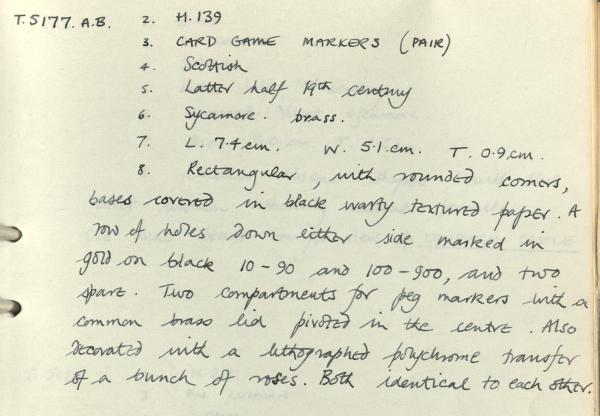 T.5177. A.B. 2. H.139
3. CARD GAME MARKERS (PAIR)
4. Scottish
5. Latter half 19th century
6. Sycamore. brass.
7. L. 7.4cm. W. 5.1 cm. T. 0.9,cm.
8. Rectangular, with rounded corners,
bases covered in black warty textured paper. A
row of holes down either side marked in
gold on black 10-90 and 100-900, and two
spare. Two compartments for peg markers with a
common brass lid pivoted in the centre. Also
decorated with a lithographed polychrome transfer
of a bunch of roses. Both identical to each other.